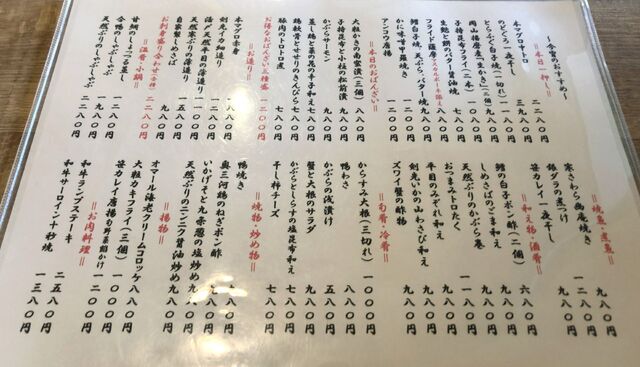 ～今宵のおすすめ～
＝本日一押し＝
本マグロ中トロ 二二八〇円
のどぐろ一夜干し
とらふぐ白子焼（一切れ） 三九八〇円
岡山播磨産生かき（三個） 九八〇円
生鮑と鱈のバター醤油焼
子持昆布フライ（二本） 一〇〇〇円
フライド薩摩
鱈白子焼、天ぷら、バター焼 九八〇円
かに味噌甲羅焼き
アンコウ唐揚 一一〇〇円
＝本日のおばんざい＝
大粒かきの南蛮漬（三個） 八八〇円
子持昆布と小柱の松前漬 九八〇円
かぶらサーモン 八八〇円
蒸し鶏と菜の花の辛子和え 七八〇円
鶏軟骨とせせりのきんぴら 七八〇円
豚肉のトロトロ煮 七八〇円
＝お得なおばんざい三種盛 一二〇〇円＝
＝お造り＝
本マグロ赤身
剣先イカ細造り 一八八〇円
活〆天然平目の薄造り 一八八〇円
天然寒ぶりの薄造り 一五八〇円
自家製しめさば 九八〇円
お刺身盛り合わせ 二二八〇円
＝温肴・小鍋＝
甘鯛のしょうろ蒸し 一二八〇円
合鴨のしゃぶしゃぶ
天然ぶりのしゃぶしゃぶ 二二八〇円
＝焼魚・煮魚＝
家さわら幽庵焼き 九八〇円
銀ダラの煮つけ 一二八〇円
笹カレイ一夜干し 九八〇円
＝和え物・酒肴＝
鱈の白子ポン酢（二個） 六八〇円
しめさばのごま和え 九八〇円
天然ぶりのかぶら巻 一一八〇円
おつまみトロたく
平目のみぞれ和え
剣先いかの山わさび和え
ズワイ蟹の酢物
＝旬肴・冷肴＝
からすみ大根（三切れ） 一〇〇〇円
鴨わさ 八八〇円
かぶらの浅漬け 五八〇円
蟹と大根のサラダ 八八〇円
かぶらとしらすの塩昆布和え 七八〇円
干し柿チーズ 七八〇円
＝焼物・炒め物＝
鴨焼き
奥三河鶏ねぎポン酢 八八〇円
いかげそと九条葱の塩炒め 九八〇円
天然ぶりのニンニク醤油炒め 九八〇円
＝揚物＝
オマール海老クリームコロッケ 八八〇円
大粒カキフライ（三個） 一二〇〇円
笹カレイ唐揚旬野菜餡かけ 一二〇〇円
＝お肉料理＝
和牛ランプステーキ 二五八〇円
和牛サーロイン十秒焼 一三八〇円